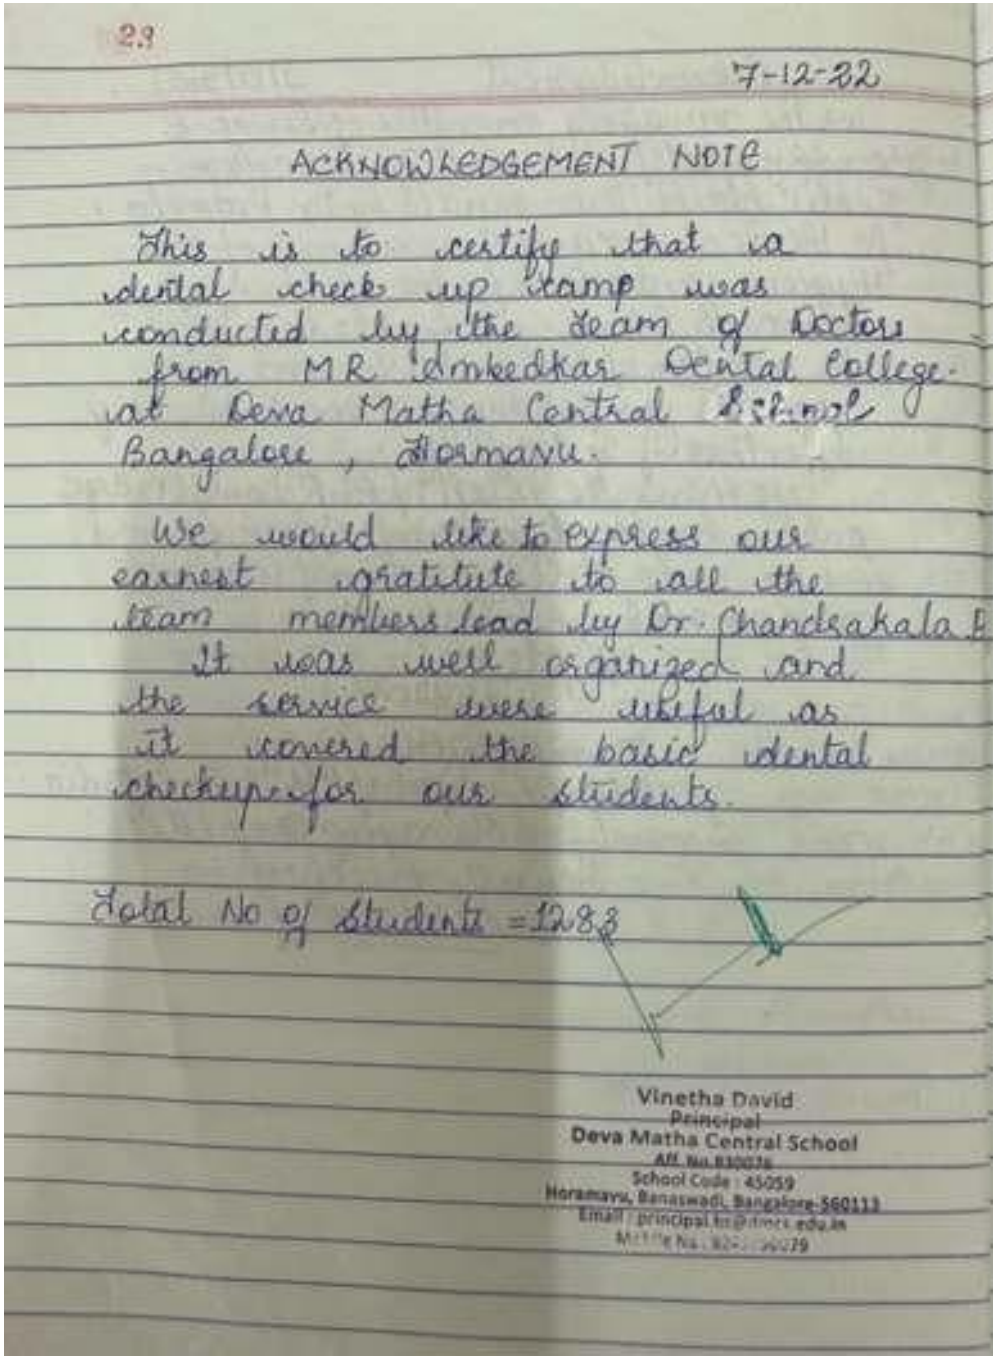 29
7-12-22
ACKNOWLEDGEMENT NOTE
This is to certify that a
dental check up camp was
conducted by the Team of Doctors
from MR Ambedkar Dental College.
at Deva Matha Central School
Bangalore, Hormavu.
We would like to express our
earnest gratitute to all the
team members lead by Dr. Chandrakala B
It was well organized and
the service were useful as
it covered the basic dental
checkup for our students.
Total No of Students = 1283
Vinetha David
Principal
Deva Matha Central School
Aff. No. 830076
School Code : 45059
Horamavu, Banaswadi, Bangalore-560113
Email :
Mobile No.